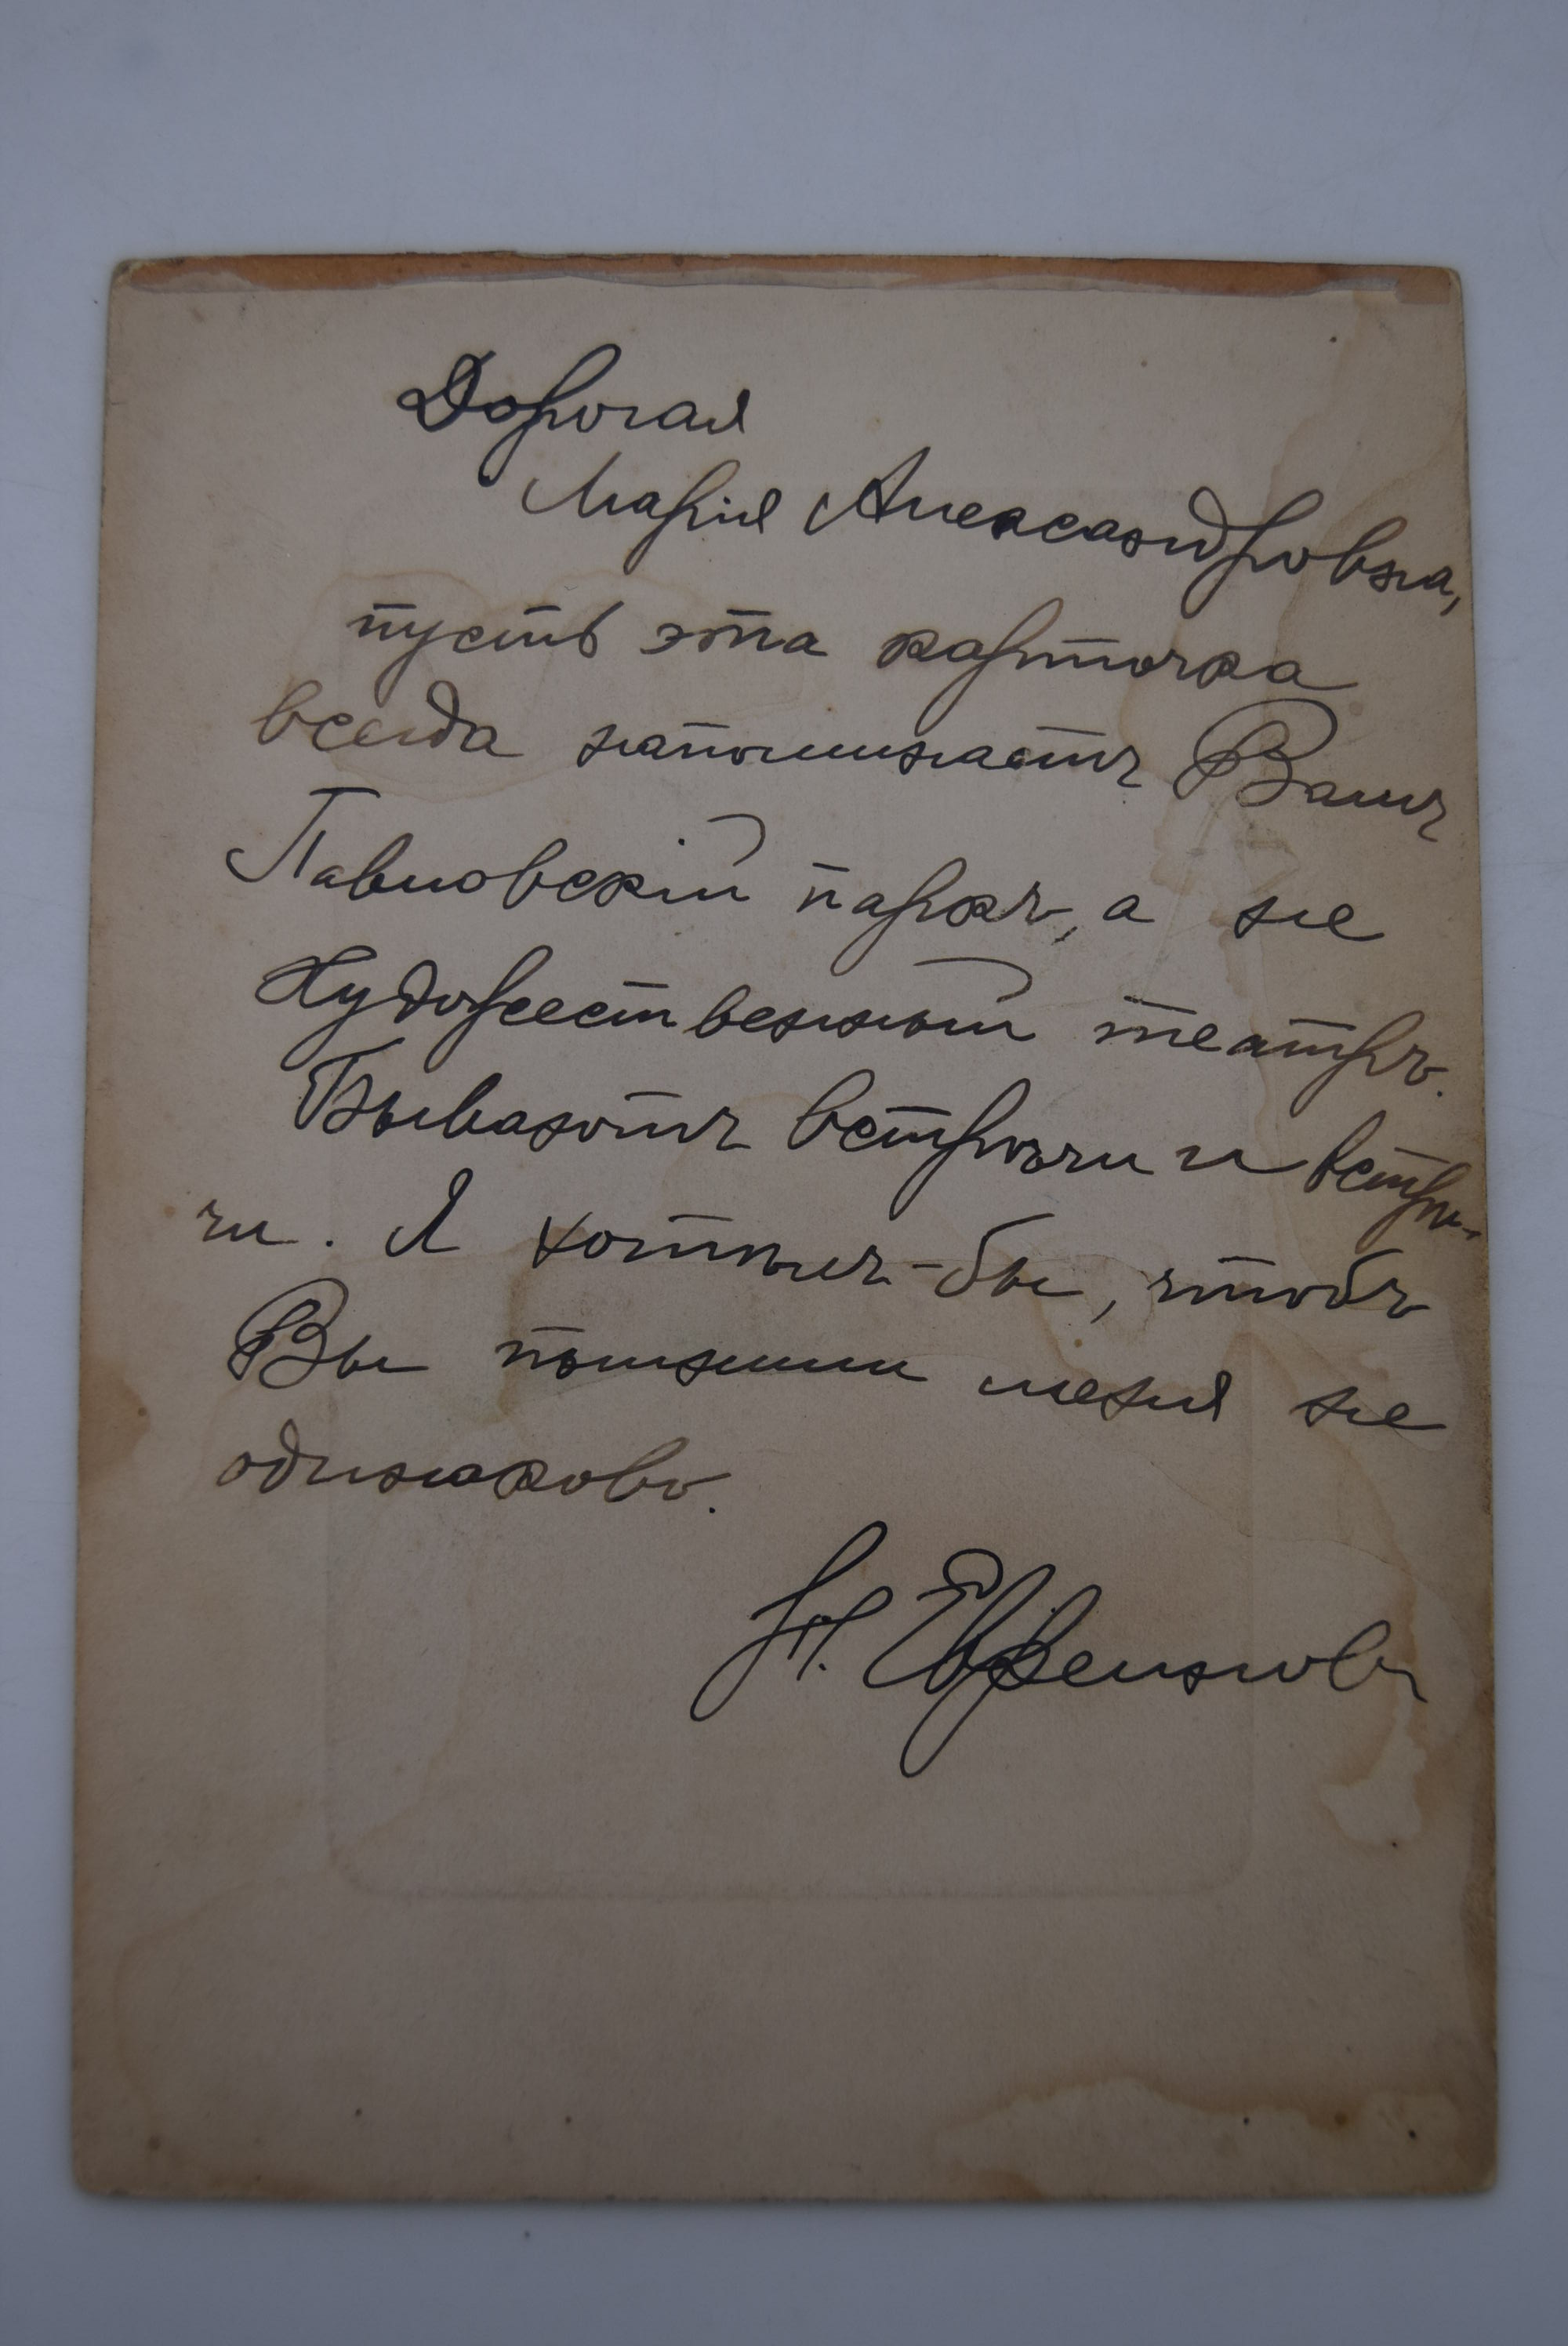 Дорогая
Марія Александровна,
пусть эта карточка
всегда напоминаетъ Вамъ
Павловскій паркъ, а не
Художественный театръ.
Бываютъ встрѣчи и встрѣ-
чи. Я хотѣлъ-бы, чтобъ
Вы помнили меня не
одинаково.
Н. Евреиновъ